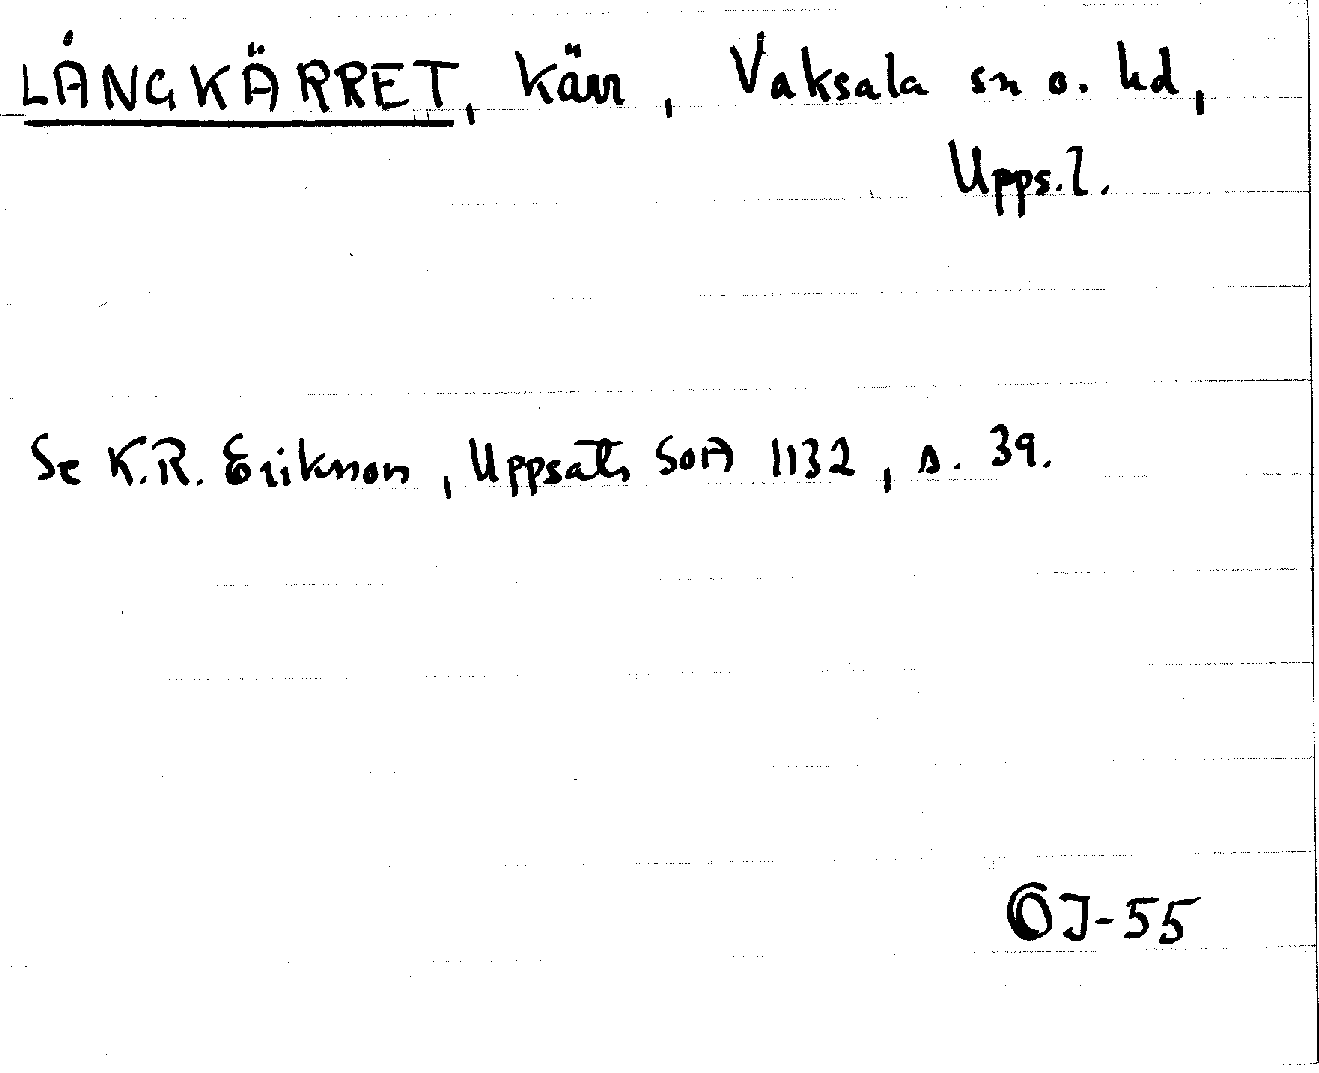 LÅNGKÄRRET, Kärr, Vaksala sn o. hd,
Upps.l.
Se K.R. Erikson, Uppsats SOA 1132, s. 39.
OJ-55